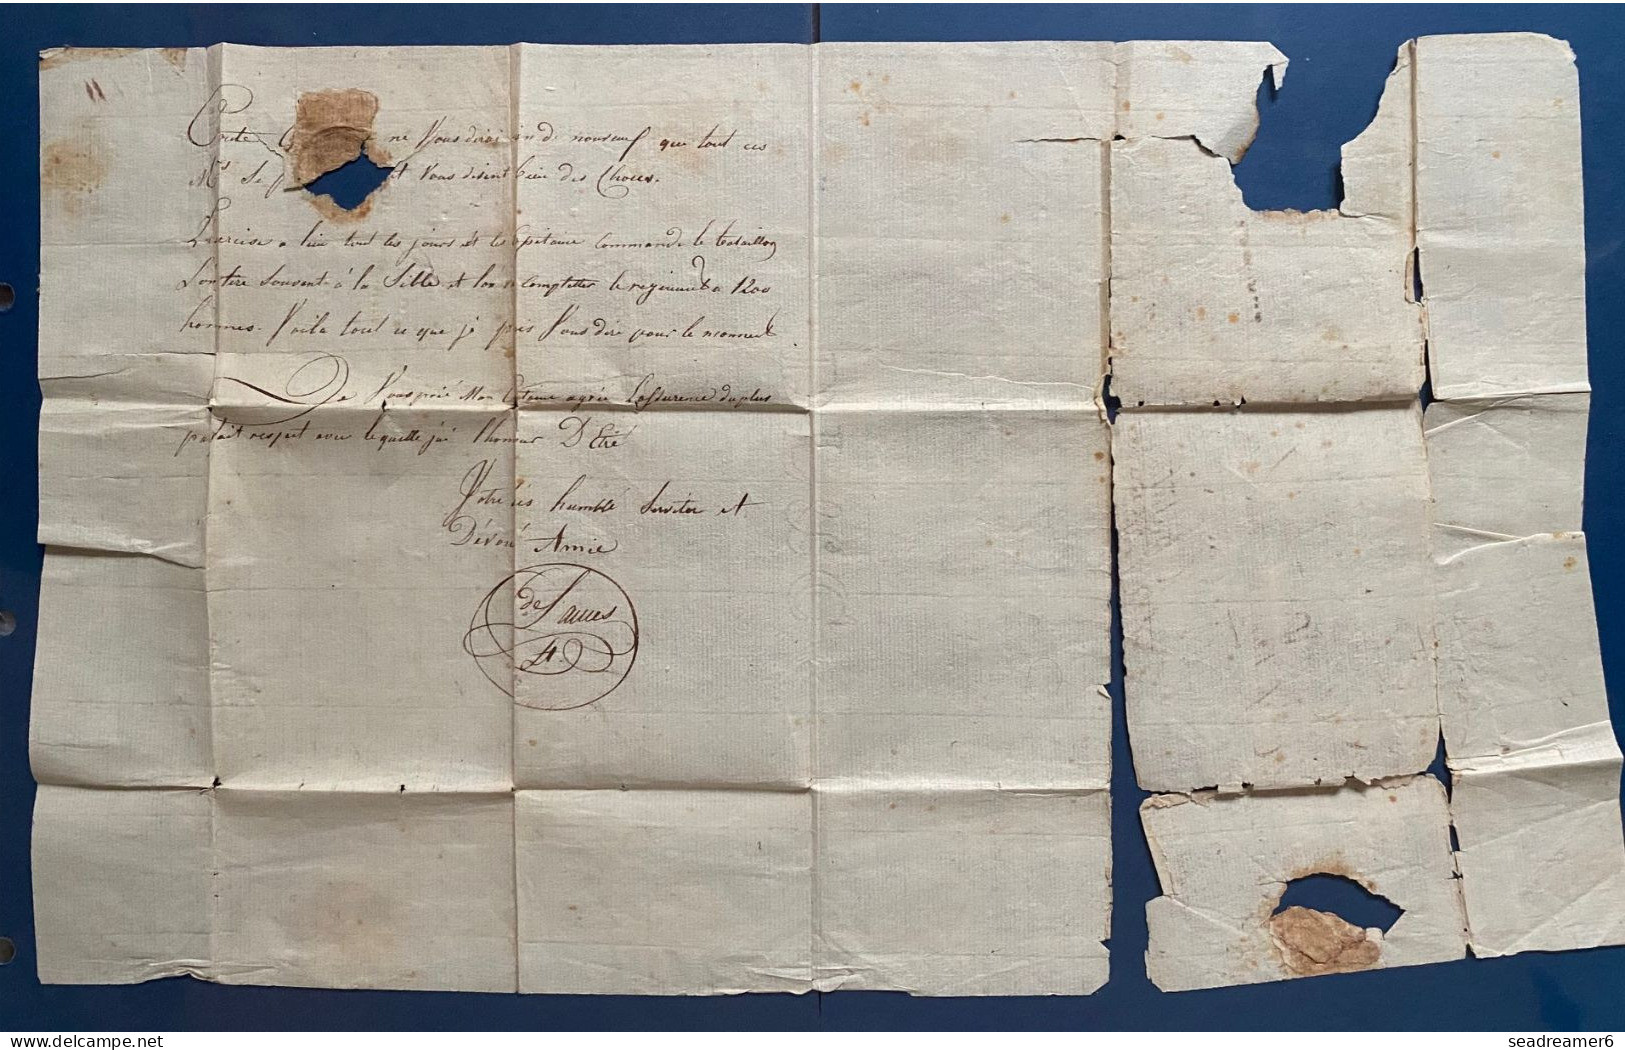 ne Vous dirai de nouveau que tout ces
Mrs Se Vous disent bien des Choses.
Exercise a lieu tout les jours et les Capitaine commande le bataillon
L'on tire Souvent à la Sible et l'on completter le regiment a 1200
hommes. Voila tout ce que je puis Vous dire pour le moment
De Vous prié Mon Capitaine agrée Lasdurence du plus
parfait respect avec lequelle j'ai l'honneur D'Etre
Votre très humble Serviter et
Dévoué Amie
de
delcampe.net
seadreamer6